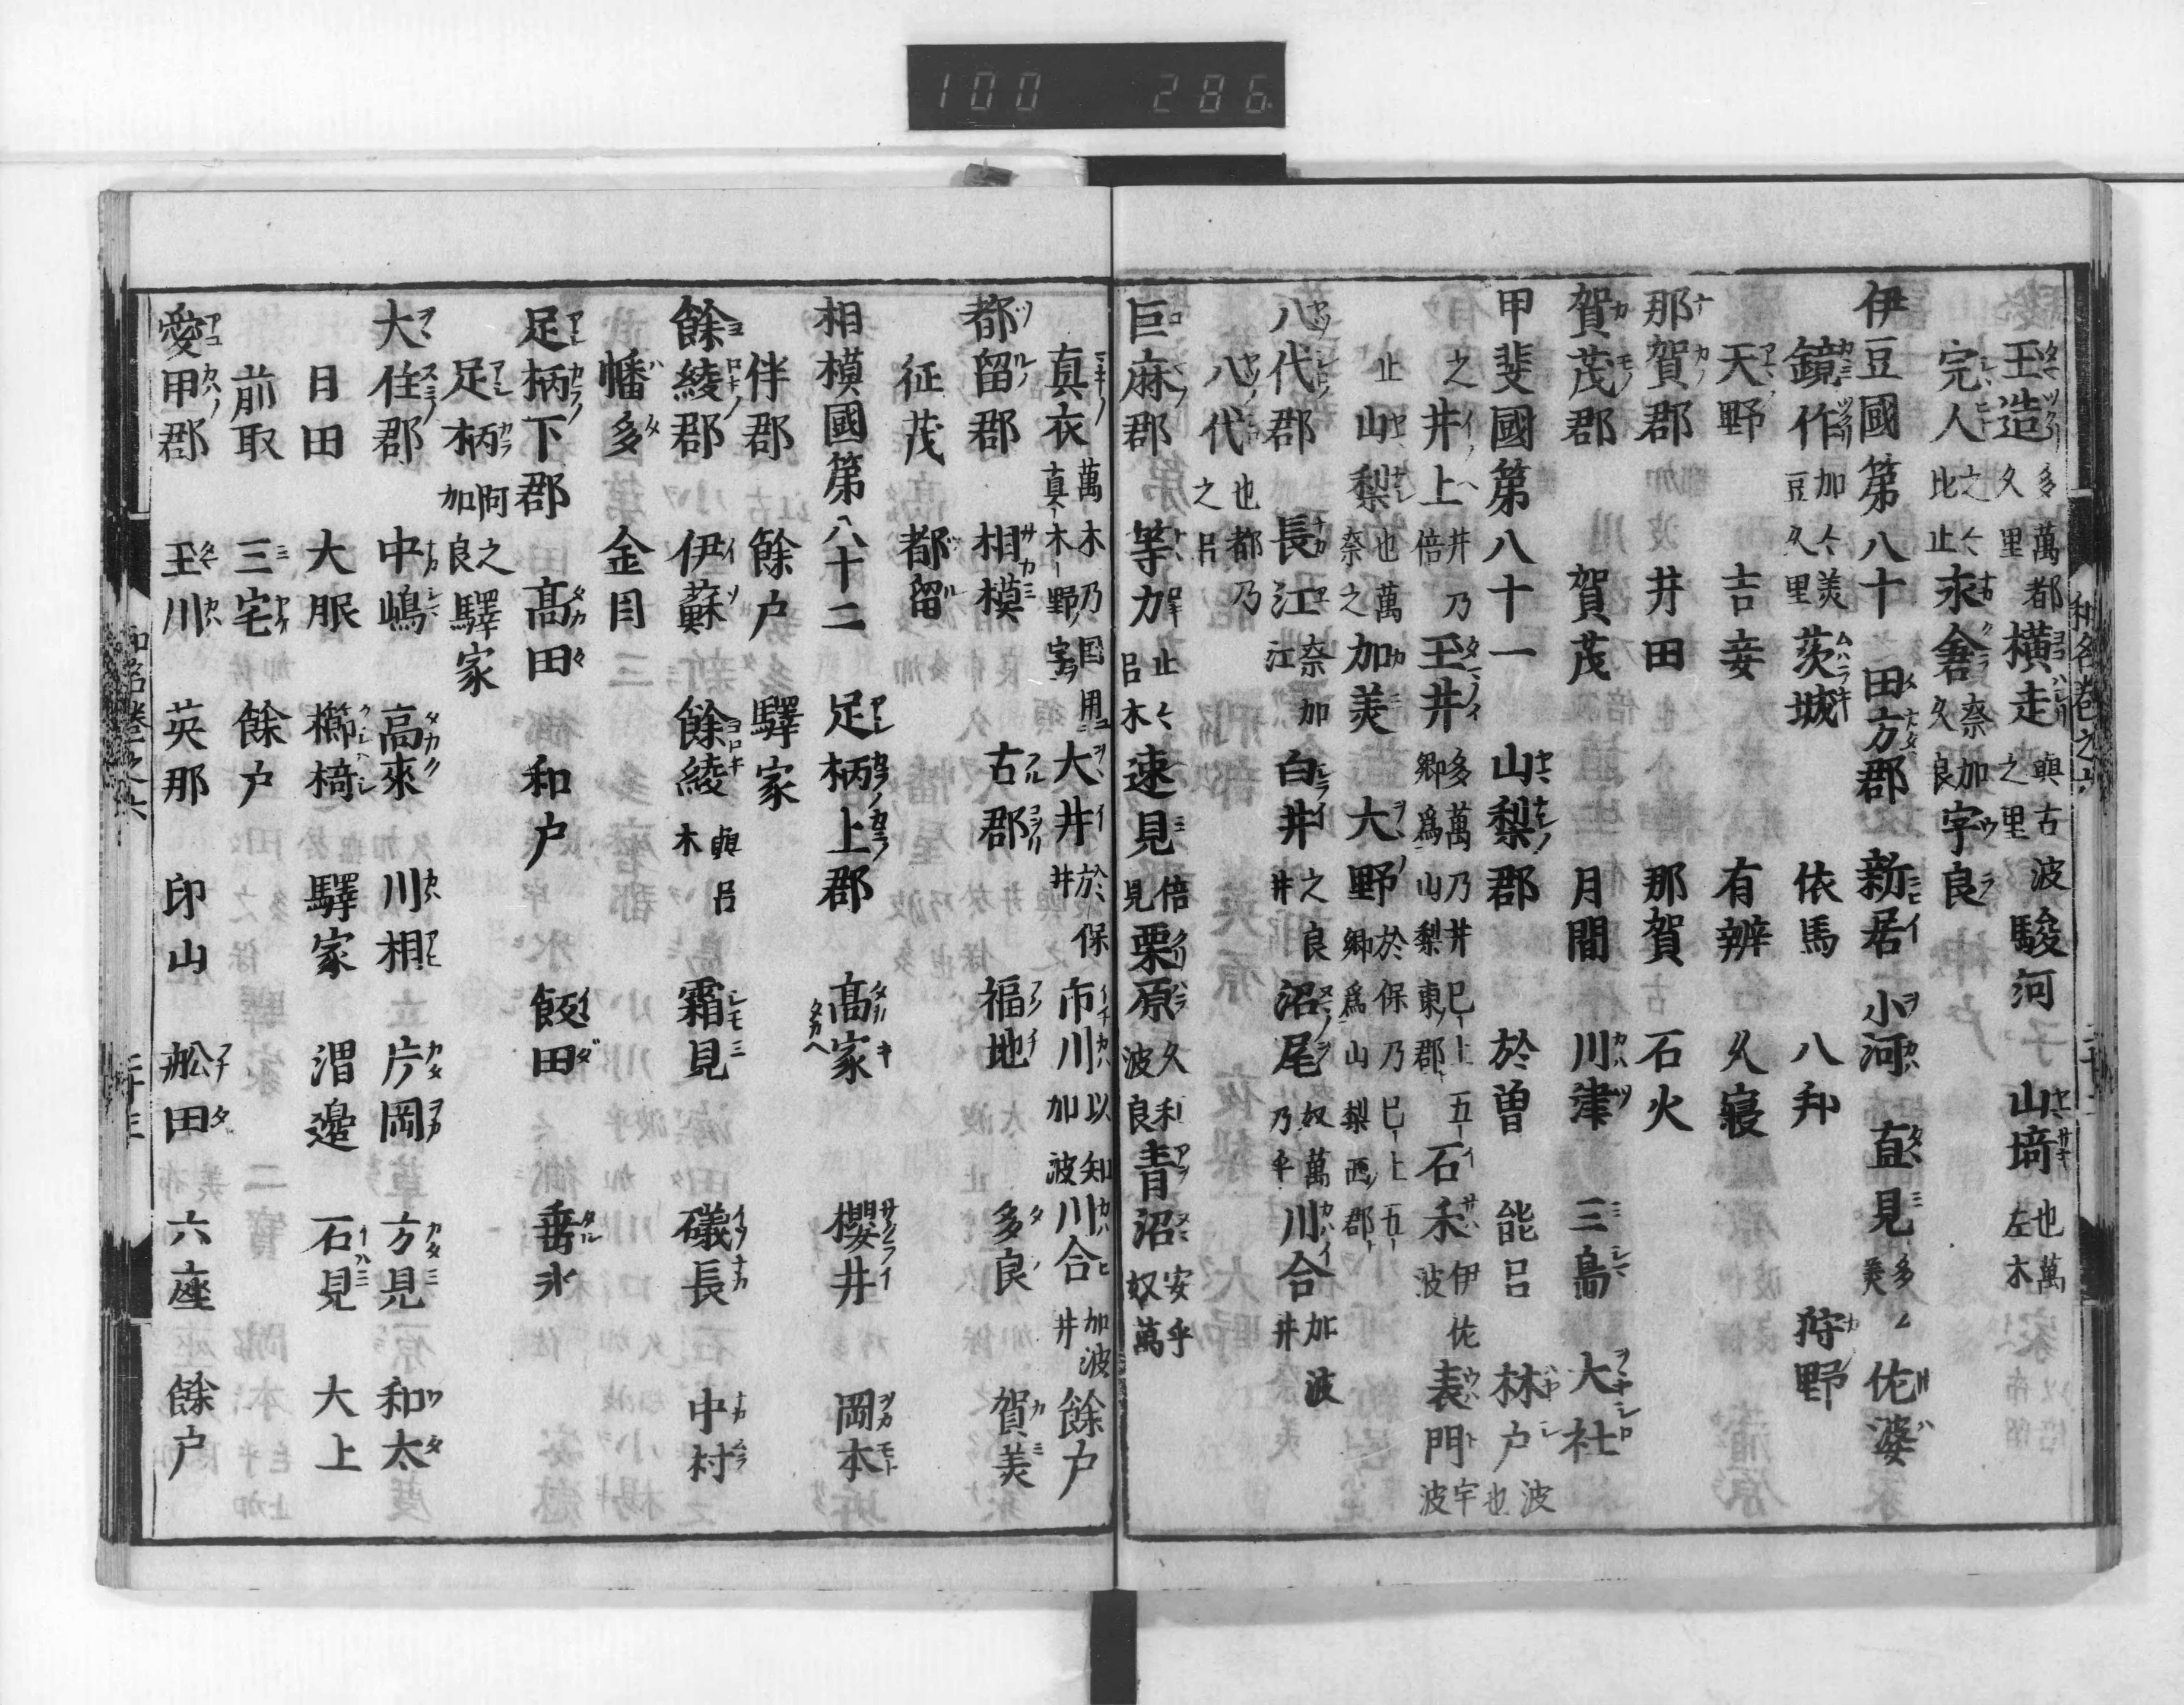 100 286
王造 多萬都久里 橫走 與古波之里 駿河 山埼 也萬左木
完人 之〻比止 永倉 奈加久良 宇良
伊豆國第八十 田方郡 新居 小河 直見 多〻美 佐婆
鏡作 加〻美豆久里 茨城 依馬 八邦 狩野
天野 吉妾 有辨 久寝
那賀郡 井田 那賀 石火
賀茂郡 賀茂 月間 川津 三島 大社
甲斐國第八十一 山梨郡 於曽 能呂 林戸 波也之
井上 井乃倍 王井 多萬乃井 鄉爲山梨東郡 已上五 石禾 伊佐波 表門 宇波止
山梨 也萬奈之 加美 大野 於保乃 鄉爲山梨西郡 已上五
八代郡 長江 奈加江 白井 之良井 沼尾 奴萬乃乎 川合 加波井
八代 也都乃之呂
巨麻郡 等力 止〻呂木 速見 倍見 栗原 久利波良 青沼 安乎奴萬
真衣 萬木乃 真木野 国用 大井 於保井 市川 以知加波 川合 加波井 餘户
都留郡 相模 古郡 福地 多良 賀美
征茂 都留
相模國第八十二 足柄上郡 髙家 櫻井 岡本
伴郡 餘户 驛家
餘綾郡 伊蘇 餘綾 與呂木 霜見 礒長 中村
幡多 金目
足柄下郡 髙田 和户 飯田 垂氷
足柄 阿之加良 驛家
大住郡 中嶋 高來 川相 片岡 方見 和太
日田 大服 櫛椅 驛家 渭邊 石見 大上
前取 三宅 餘户
愛甲郡 玉川 英那 印山 舩田 六座 餘户